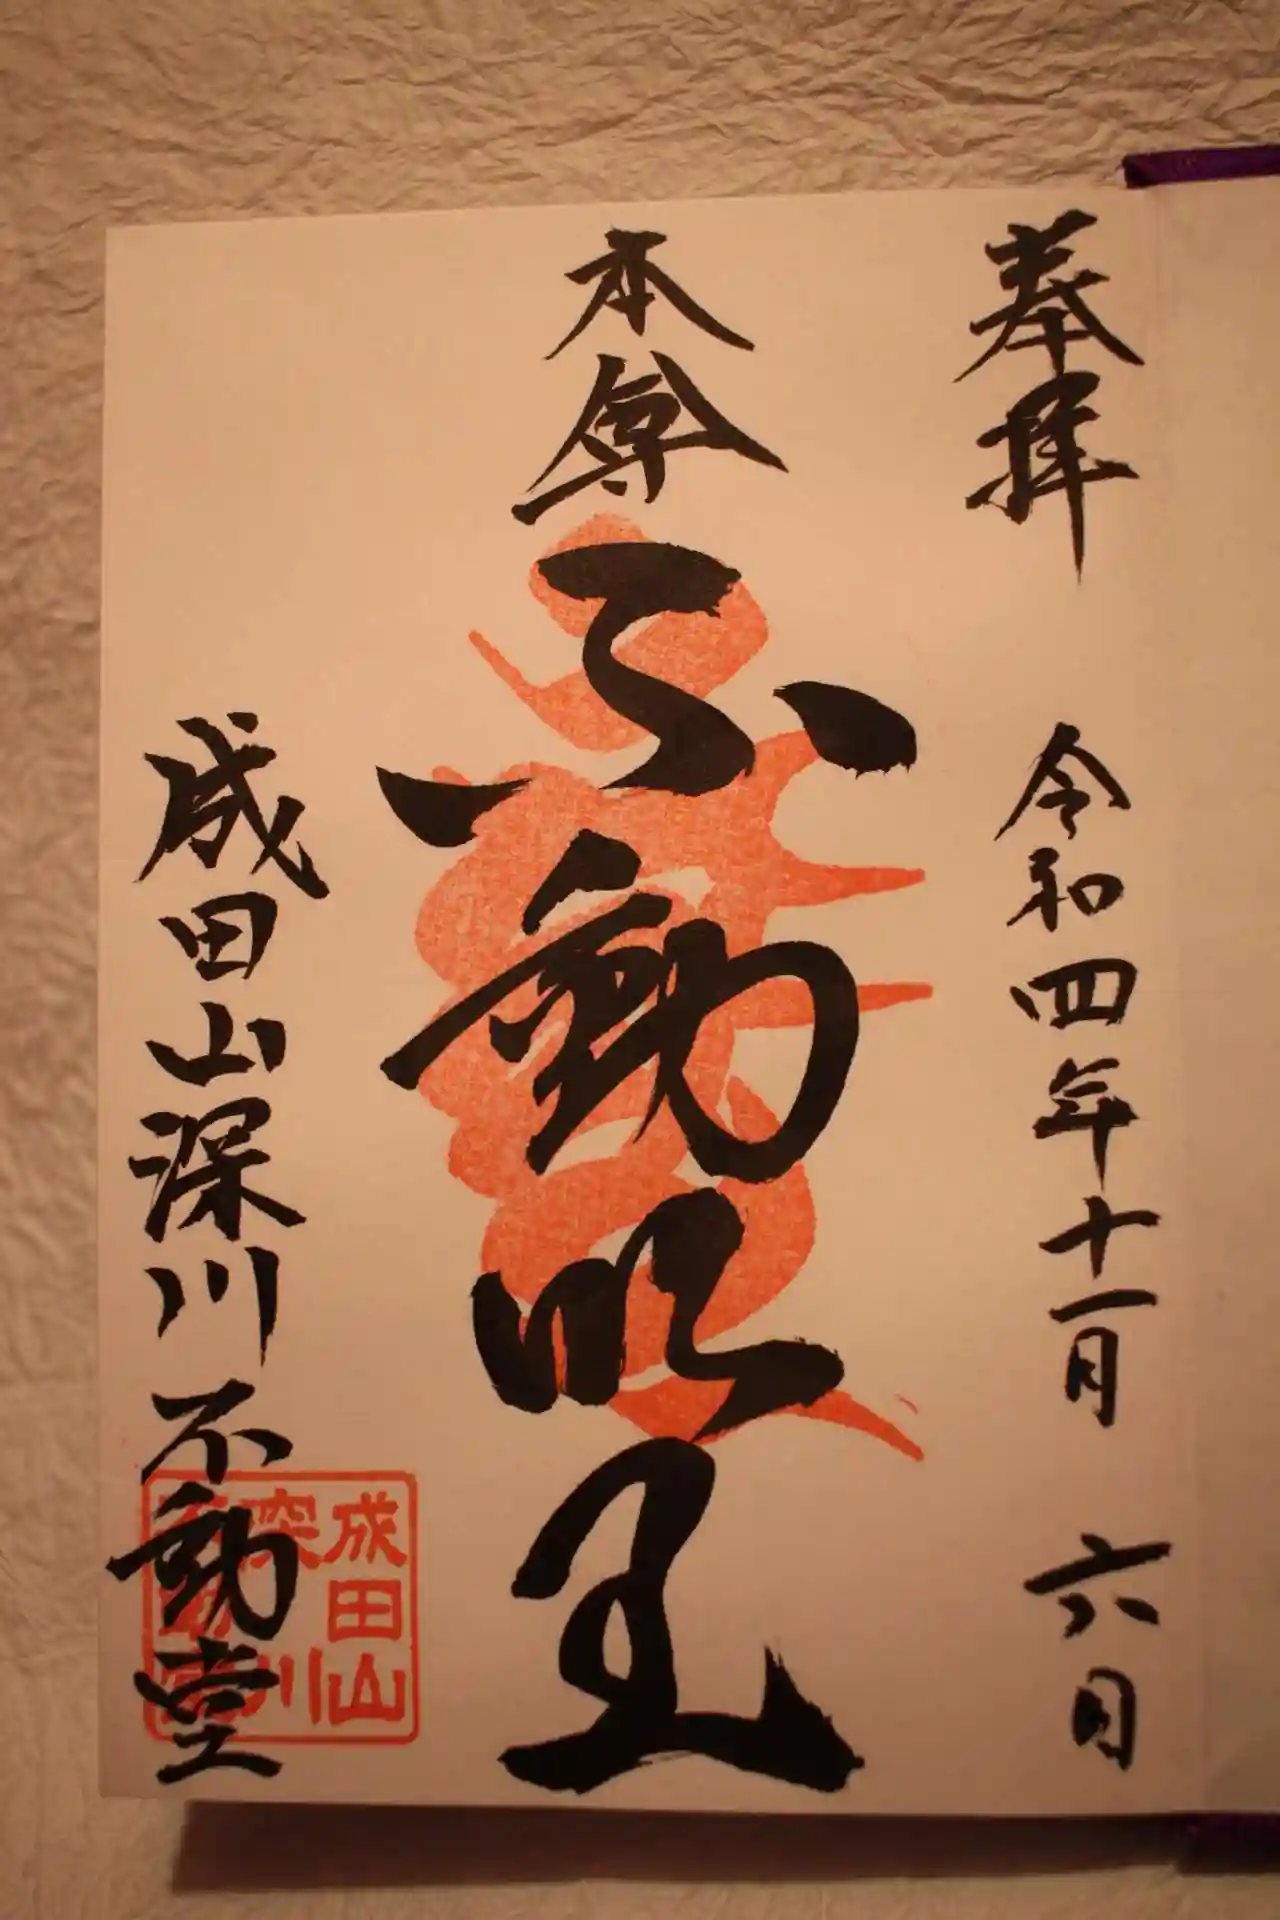 奉拝 令和四年十一月 六日
本尊
不動明王
成田山深川不動堂
成田山
深川